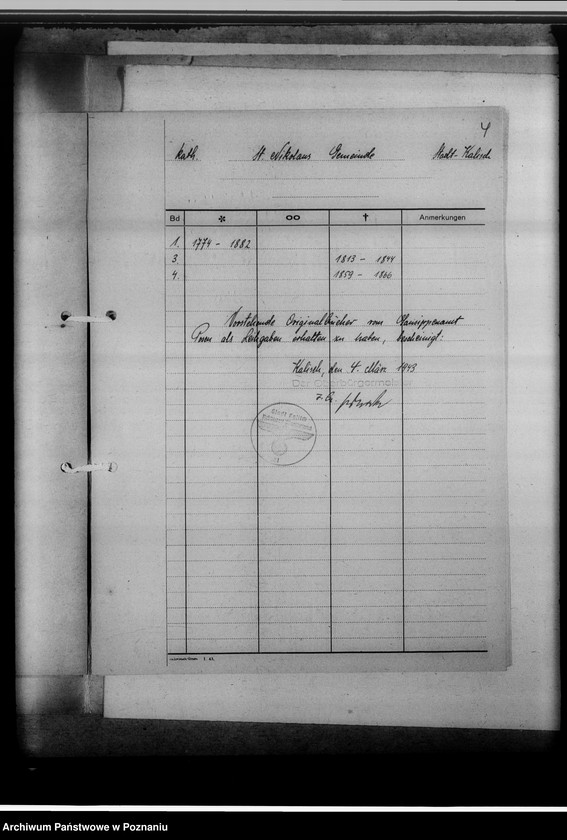 4
kath. St. Nikolaus Gemeinde Stadt-Kalisch
Bd * oo † Anmerkungen
1. 1774 - 1882
3. 1813 - 1844
4. 1859 - 1866
Vorstehende Originalbücher vom Gausippenamt
Posen als Leihgaben erhalten zu haben, bescheinigt:
Kalisch, den 4. März 1943
Der Oberbürgermeister
I. 41.
Archiwum Państwowe w Poznaniu